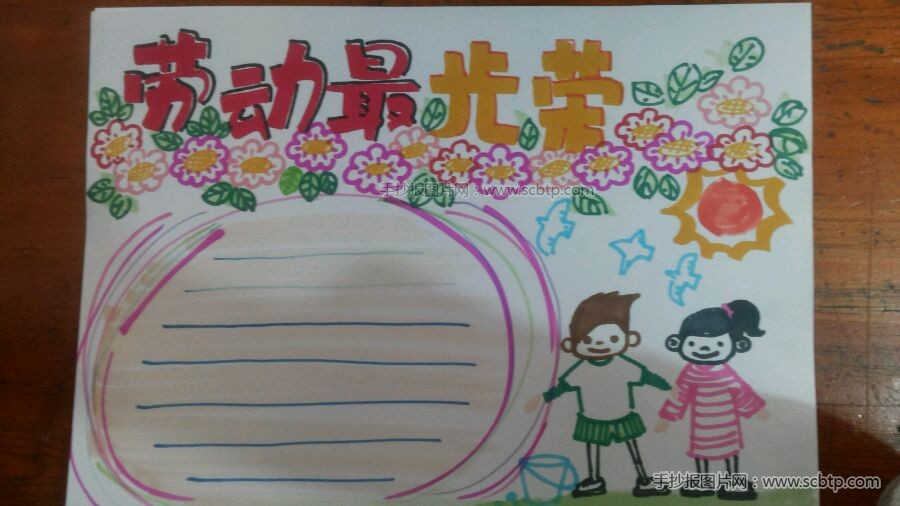 劳动最光荣
手抄报图片网：www.scbtp.com
手抄报图片网：www.scbtp.com